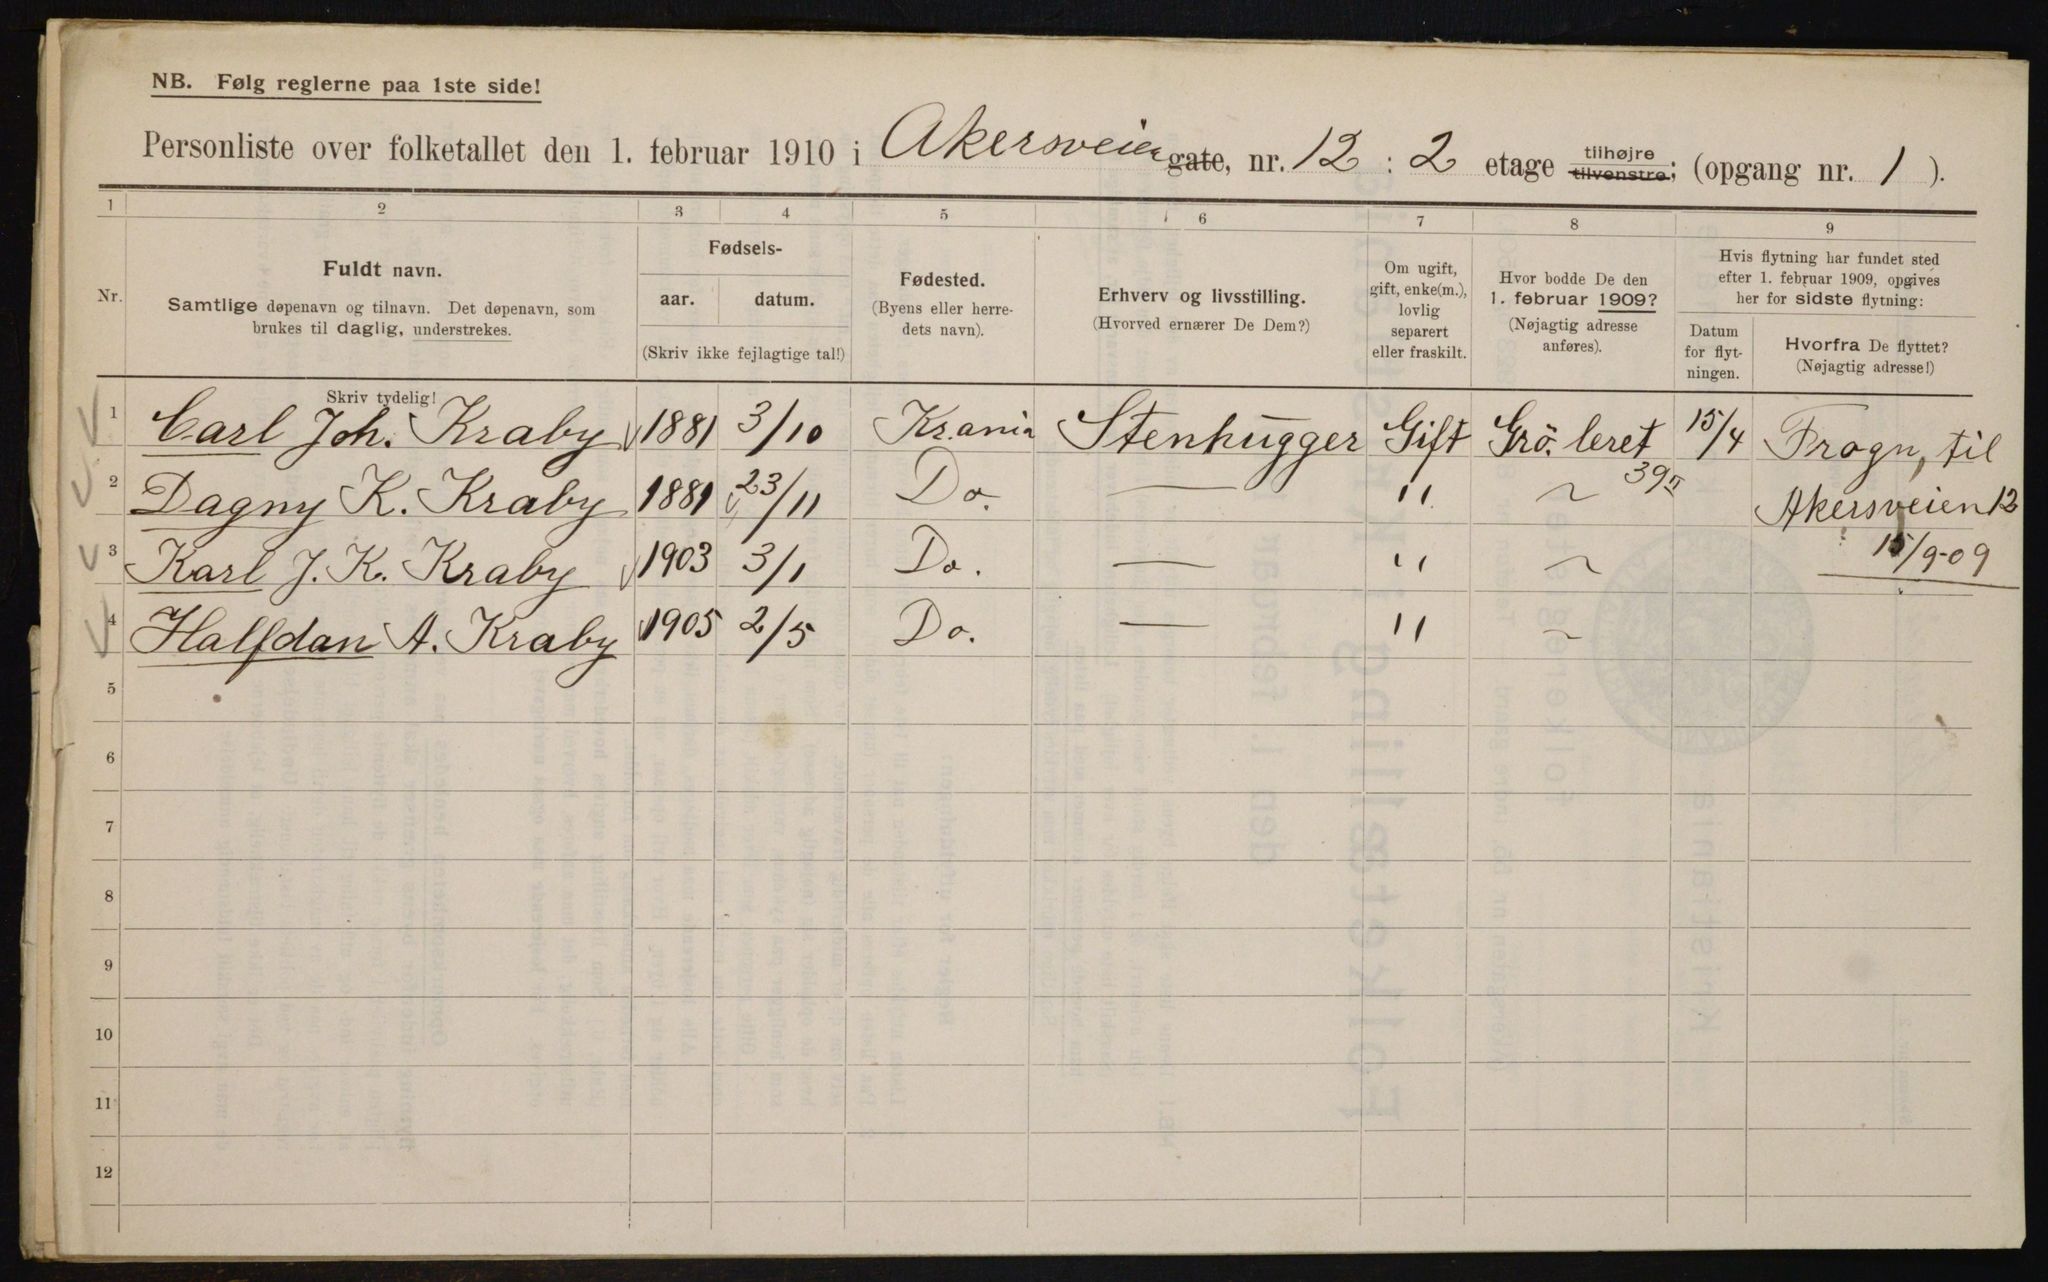 NB. Følg reglerne paa 1ste side!
Personliste over folketallet den 1. februar 1910 i Akersveien gate, nr. 12 : 2 etage tilhøjre tilvenstre; (opgang nr. 1 ).
1 2 3 4 5 6 7 8 9
Nr.
Fuldt navn.
Samtlige døpenavn og tilnavn. Det døpenavn, som
brukes til daglig, understrekes.
Skriv tydelig!
Fødsels-
aar. datum.
(Skriv ikke fejlagtige tal!)
Fødested.
(Byens eller herre-
dets navn).
Erhverv og livsstilling.
(Hvorved ernærer De Dem?)
Om ugift,
gift, enke(m.),
lovlig
separert
eller fraskilt.
Hvor bodde De den
1. februar 1909?
(Nøjagtig adresse
anføres).
Hvis flytning har fundet sted
efter 1. februar 1909, opgives
her for sidste flytning:
Datum
for flyt-
ningen.
Hvorfra De flyttet?
(Nøjagtig adresse!)
1 Carl Joh. Kraby 1881 3/10 Kr.ania Stenhugger Gift Grø. leret 39II 15/4 Frogn, til
2 Dagny K. Kraby 1881 23/11 Do. — " ~ Akersveien 12
3 Karl J. K. Kraby 1903 3/1 Do. — " ~ 15/9-09
4 Halfdan A. Kraby 1905 2/5 Do. — " ~
5
6
7
8
9
10
11
12